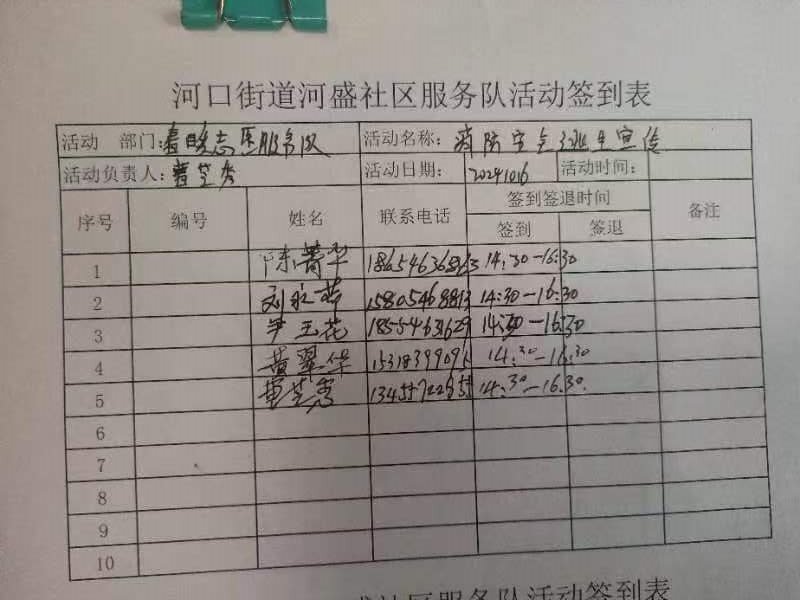 河口街道河盛社区服务队活动签到表
活动 部门: 志愿服务队 活动名称: 消防安全 卫生宣传
活动负责人: 活动日期: 20241016 活动时间:
序号 编号 姓名 联系电话 签到签退时间 备注
签到 签退
1 陈菁华 14:30-16:30
2 刘永 15805468813 14:30-16:30
3 尹玉花 18554631629 14:30-16:30
4 黄翠华 14:30-16:30
5 14:30-16:30
6
7
8
9
10
社区服务队活动签到表